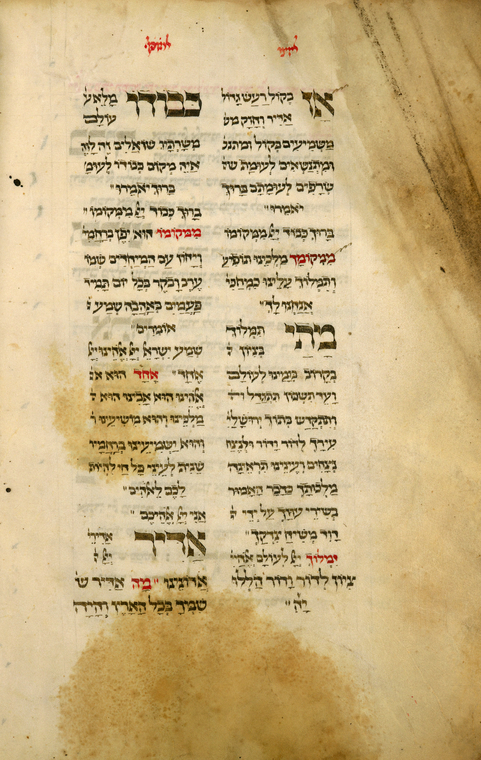 למוסף
אז בקול רעש גדול
אדיר וחזק מש
משמיעים בקול ומתנ
ומתנשאים לעומת שה
שרפים לעומתם ברוך
יאמרו"
ברוך כבוד ייי ממקומו
ממקומך מלכינו תופיע
ותמלוך עלינו כמחכי
אנחנו לך"
מתי תמלוך
בציון ה
בקרוב בימינו לעולם
ועד תשכון תתגדל ית
ותתקדש בתוך ירושלי
עירך לדור ודור ולנצח
נצחים ועינינו תראינה
מלכותך כדבר האמור
בשירי עוזך על ידי ה
דוד משיח צדקך"
ימלוך ייי לעולם אלהי
ציון לדור ודור הללו
יה"
כבודו מלא ע
עולם
משרתיו שואלים זה לזה
איה מקום כבודו לעומ
ברוך יאמרו"
ברוך כבוד ייי ממקומו"
ממקומו הוא יפן ברחמ
ויחון עם המיחדים שמו
ערב ובקר בכל יום תמיד
פעמים באהבה שמע
אומרים"
שמע ישראל ייי אלהינו ייי
אחד" אחד הוא א
אלהינו הוא אבינו הוא
מלכינו והוא מושיעינו
והוא ישמיעינו ברחמיו
שנית לעיני כל חי להיות
לכם לאלהים"
אני ייי אלהיכם"
אדיר אדירי
ייי
אדונינו" מה אדיר ש
שמך בכל הארץ והיה